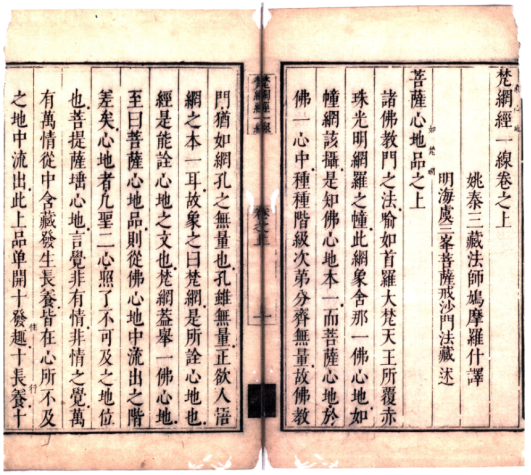 梵網經一線卷之上
姚秦三藏法師鳩摩羅什譯
明海虞三峯菩薩戒沙門法藏述
菩薩心地品之上
諸佛教門之法喻如首羅大梵天王所覆赤
珠光明網羅之幢此網象舍那一佛心地如
幢網該攝是知佛心地本一而菩薩心地於
佛一心中種種階級次第分齊無量故佛教
梵網經一線
卷之上
一
門猶如網孔之無量也孔雖無量正欲人悟
網之本一耳故象之曰梵網是所詮心地也
經是能詮心地之文也梵網蓋舉一佛心地
至曰菩薩心地品則從佛心地中流出之階
差矣心地者凡聖二心照了不可及之地位
也菩提薩埵心地言覺非有情非情之覺萬
有萬情從中含藏發生長養皆在心所不及
之地中流出此上品单開十發趣十長養十